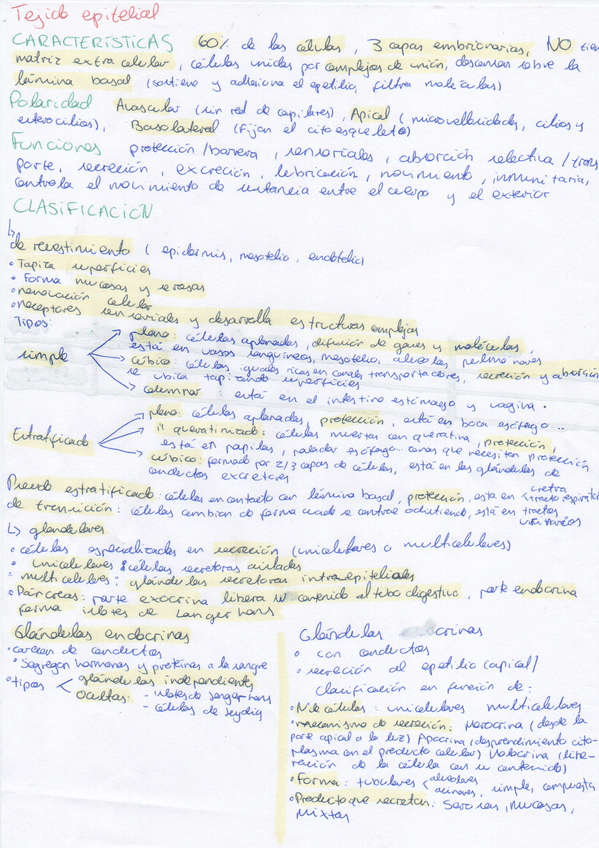 Tejido epitelial
CARACTERÍSTICAS 60% de las células, 3 capas embrionarias, NO tien
matriz extra celular, células unidas por complejos de unión, descansa sobre la
lámina basal (sostiene y adhesiona el epitelio, filtra moléculas)
Polaridad Avascular (sin red de capilares), Apical (microvellosidades, cilios y
esterocilios), Basolateral (fijan el citoesqueleto)
Funciones protección/barrera, sensoriales, absorción selectiva/trans
porte, secreción, excreción, lubricación, movimiento, inmunitaria,
controla el movimiento de sustancia entre el cuerpo y el exterior
CLASIFICACIÓN
↳
de revestimiento (epidermis, mesotelio, endotelio)
• Tapiza superficies
• Forma mucosas y serosas
• renovación celular
• receptores sensoriales y desarrolla estructuras complejas
Tipos:
simple
plano: células aplanadas, difusión de gases y moléculas,
está en vasos sanguíneos, mesotelio, alveolos pulmonares
cúbico: células iguales ricas en canales transportadores, secreción y absorción
se ubica tapizando superficies
columnar está en el intestino estómago y vagina.
Estratificado
plano: células aplanadas, protección, está en boca esófago...
" queratinizado: células muertas con queratina, protección,
está en papilas, paladar esófago... zonas que necesitan protección
cúbico: formado por 2/3 capas de células, está en las glándulas de
conductos excretores
Pseudo estratificado: células en contacto con lámina basal, protección, esta en < uretra tracto respirator
de transición: células cambian de forma cuando se contrae o distiende, está en tractos
urinarios
↳ glandulares
• células especializadas en secreción (unicelulares o multicelulares)
• unicelulares: células secretoras aisladas
• multicelulares: glándulas secretoras intraepiteliales
• Páncreas: parte exocrina libera su contenido al tubo digestivo, parte endocrina
forma islotes de Langerhans
Glándulas endocrinas
• carecen de conductos
• Segregan hormonas y proteínas a la sangre
• tipos < glándulas independientes
ocultas: - islotes de langerhans
- células de leydig
Glándulas exocrinas
• con conductos
• secreción al epitelio (apical)
Clasificación en función de:
• Nº de células: unicelulares multicelulares
• mecanismo de secreción: Merocrina (desde la
parte apical a la luz) Apocrina (desprendimiento cito-
plasma con el producto celular) Holocrina (libe-
ración de la célula con su contenido)
• Forma: tubulares < alveolares acinares, simple, compuesta
• Producto que secretan: Serosas, Mucosas,
Mixtas